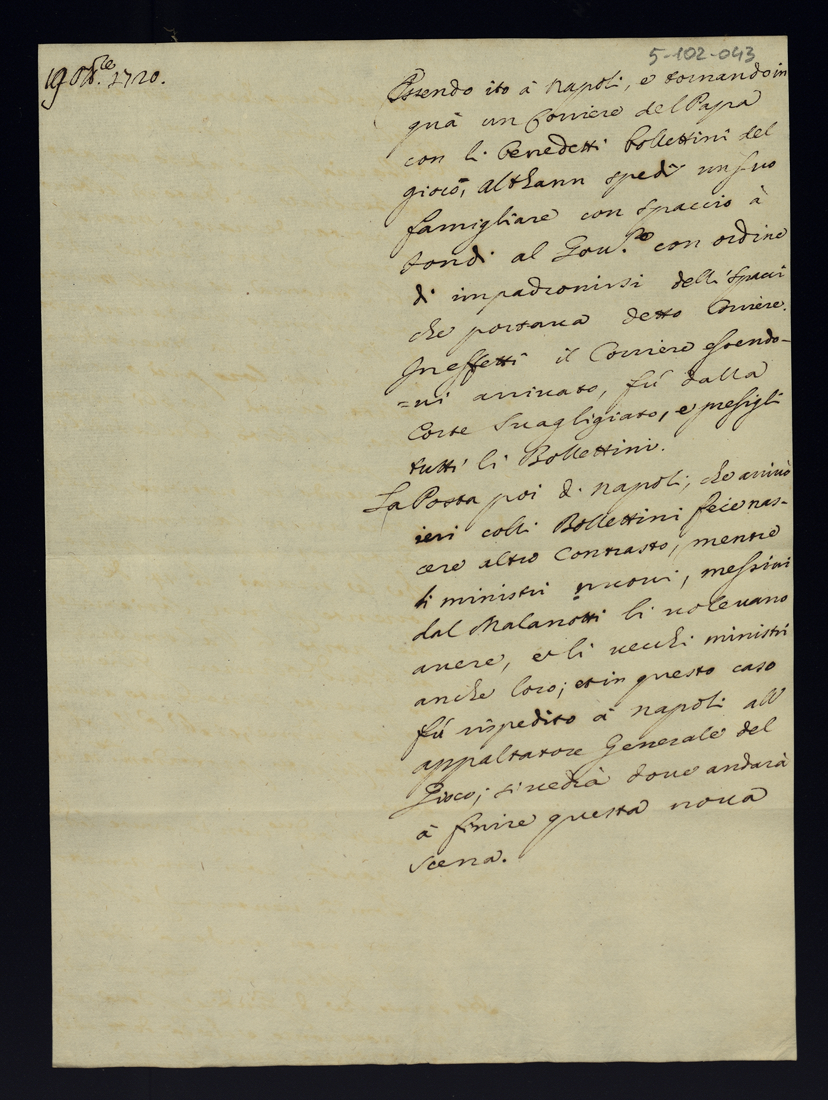 5-102-043
19 8bre. 1720.
Essendo ito à Napoli, e tornando in
quà un Corriere del Papa
con li benedetti bollettini del
gioco, Althann spedì un suo
famigliare con spaccio à
Fondi al Gou.re con ordine
di impadronirsi delli spacci
che portaua detto Corriere.
In effetti il Corriere essendo-
=ui arriuato, fù dalla
Corte Suagligiato, e presigli
tutti li Bollettini.
La Posta poi di Napoli, che arriuò
ieri colli Bollettini fece nas-
cere altro Contrasto, mentre
li ministri nuoui, messiui
dal Malanotti li uoleuano
auere, et li uecchi ministri
anche loro; et in questo caso
fù rispedito à Napoli all'
appaltatore Generale del
Gioco; si uedrà doue andarà
à finire questa noua
scena.